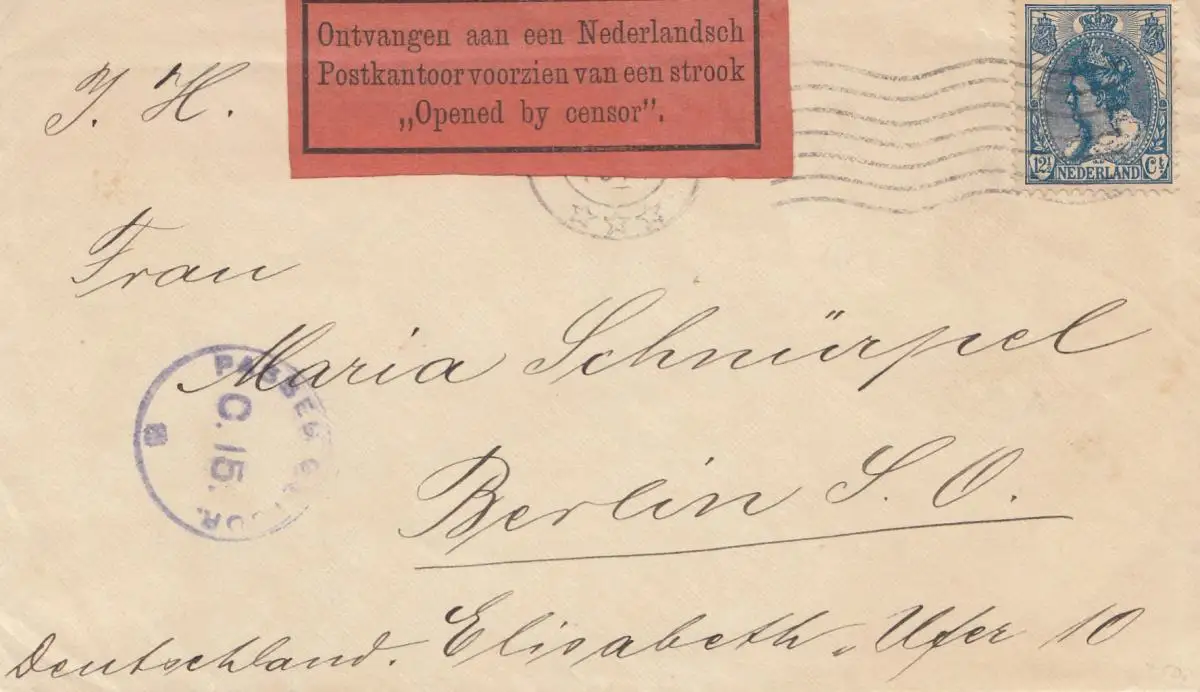 Ontvangen aan een Nederlandsch
Postkantoor voorzien van een strook
„Opened by censor".
12½ NEDERLAND Ct
J. H.
Frau
Maria Schnürpel
PASSED CENSOR.
C. 15.
Berlin S. O.
Deutschland. Elisabeth-Ufer 10